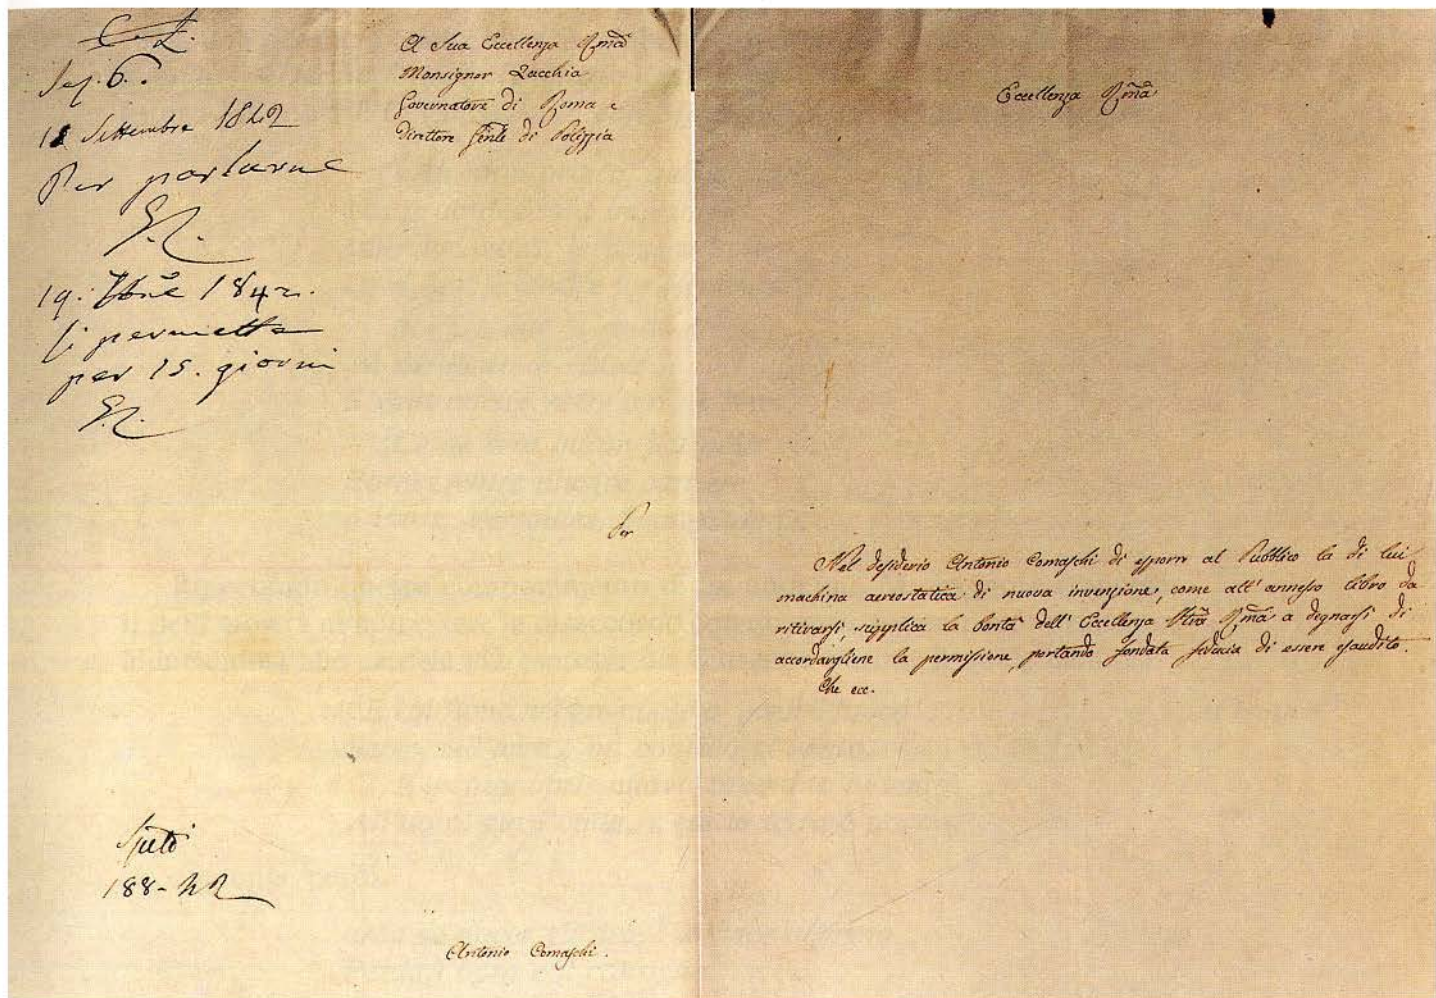 Sez. 6.
11 Settembre 1842
Per parlarne
19. 7bre 1842.
Si permetta
per 15. giorni
A Sua Eccellenza Rma
Monsignor Zacchia
Governatore di Roma e
Direttore Gnle di Polizzia
Per
188-42
Antonio Comaschi.
Eccellenza Rma
Nel desiderio Antonio Comaschi di esporre al Pubblico la di lui
machina aereostatica di nuova invenzione, come all' annesso libro da
ritirarsi, supplica la bontà dell' Eccellenza Vtra Rma a degnarsi di
accordargliene la permissione, portando fondata fiducia di essere esaudito.
Che ecc.